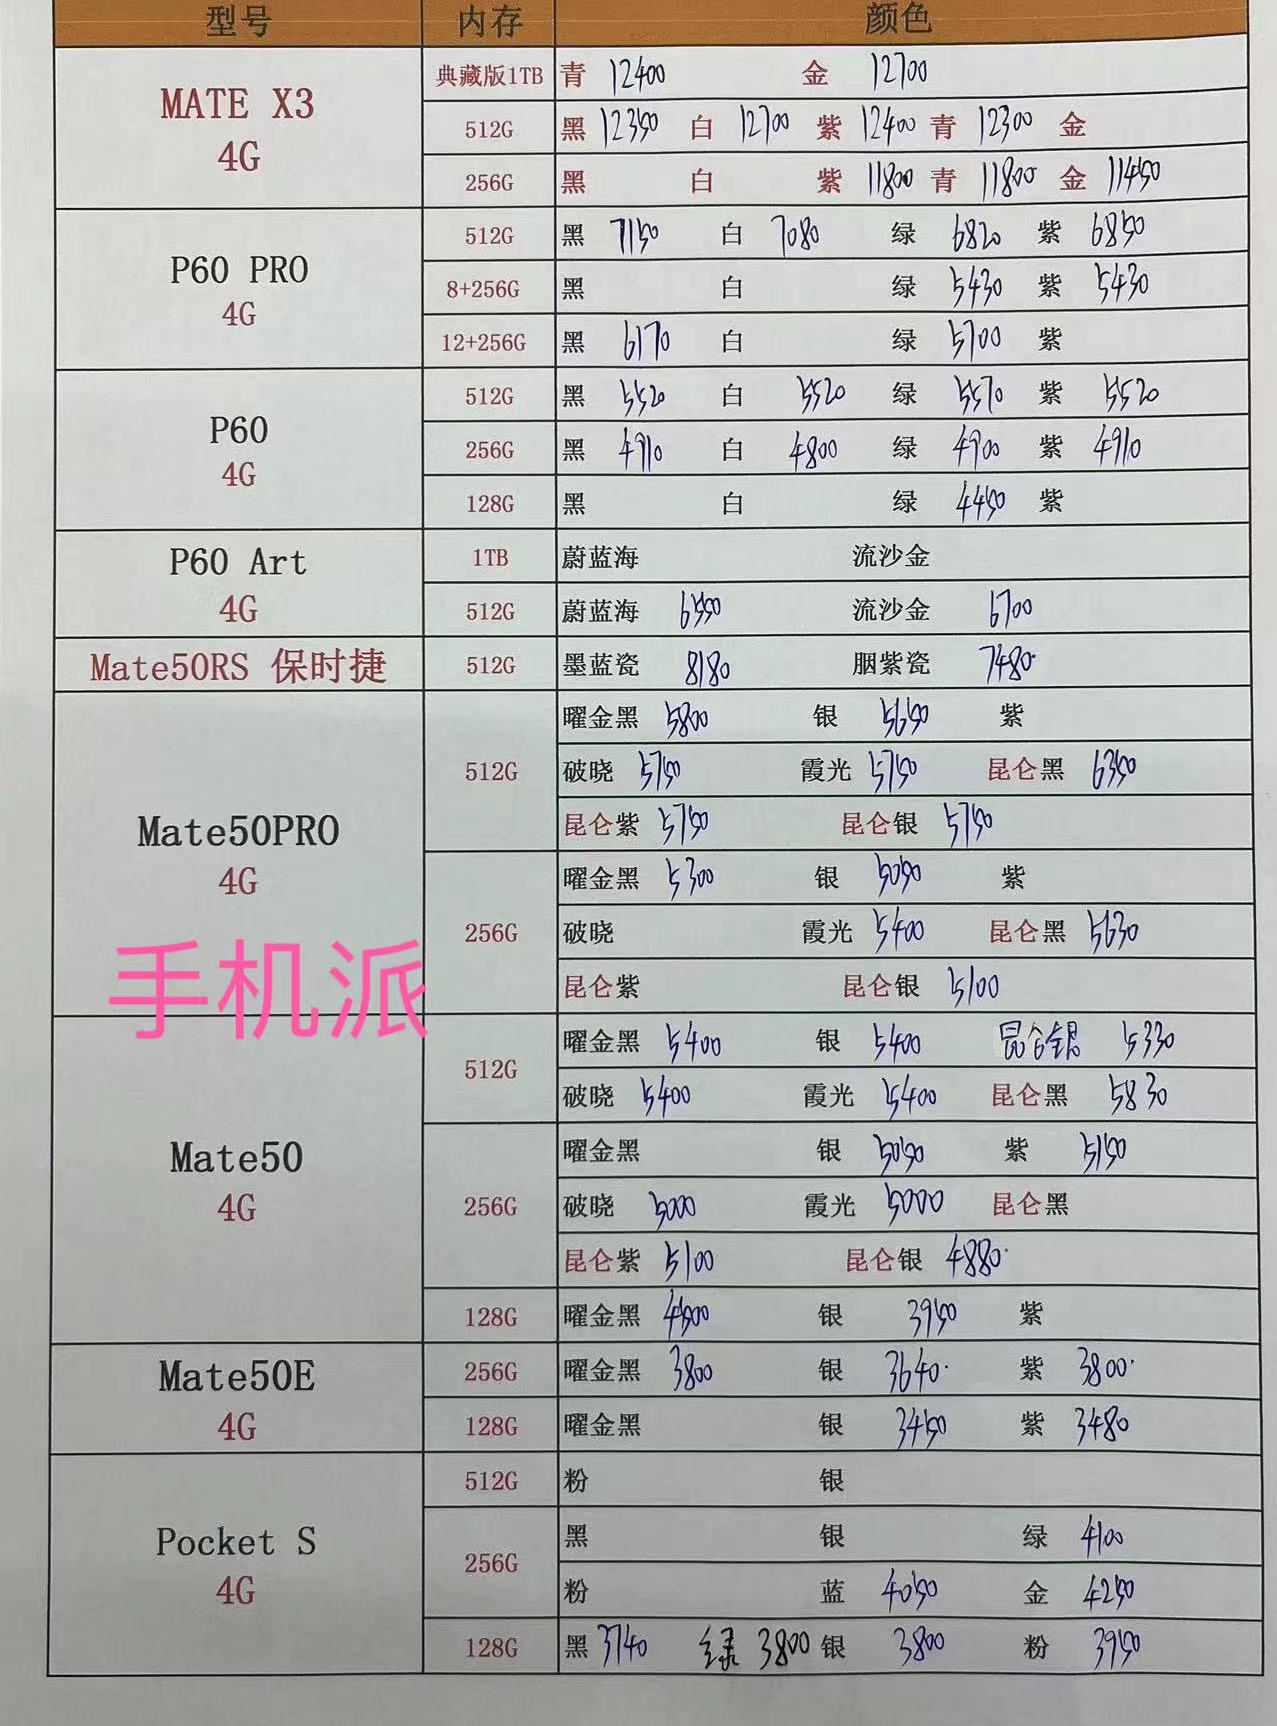 型号 内存 颜色
MATE X3 4G
典藏版1TB 青 12400 金 12700
512G 黑 12350 白 12700 紫 12400 青 12300 金
256G 黑 白 紫 11800 青 11800 金 11450
P60 PRO 4G
512G 黑 7150 白 7080 绿 6820 紫 6850
8+256G 黑 白 绿 5430 紫 5430
12+256G 黑 6170 白 绿 5700 紫
P60 4G
512G 黑 5520 白 5520 绿 5570 紫 5520
256G 黑 4910 白 4800 绿 4900 紫 4910
128G 黑 白 绿 4450 紫
P60 Art 4G
1TB 蔚蓝海 流沙金
512G 蔚蓝海 6550 流沙金 6700
Mate50RS 保时捷 512G 墨蓝瓷 8180 胭紫瓷 7480
Mate50PRO 4G
512G 曜金黑 5800 银 5650 紫
破晓 5750 霞光 5750 昆仑黑 6350
昆仑紫 5750 昆仑银 5750
256G 曜金黑 5300 银 5050 紫
破晓 霞光 5400 昆仑黑 5630
昆仑紫 昆仑银 5100
手机派
Mate50 4G
512G 曜金黑 5400 银 5400 昆仑银 5330
破晓 5400 霞光 5400 昆仑黑 5830
256G 曜金黑 银 5050 紫 5150
破晓 5000 霞光 5000 昆仑黑
昆仑紫 5100 昆仑银 4880
128G 曜金黑 银 3950 紫
Mate50E 4G
256G 曜金黑 3800 银 3640 紫 3800
128G 曜金黑 银 3450 紫 3480
Pocket S 4G
512G 粉 银
256G 黑 银 绿 4100
粉 蓝 4050 金 4250
128G 黑 3740 绿 3800 银 3800 粉 3950